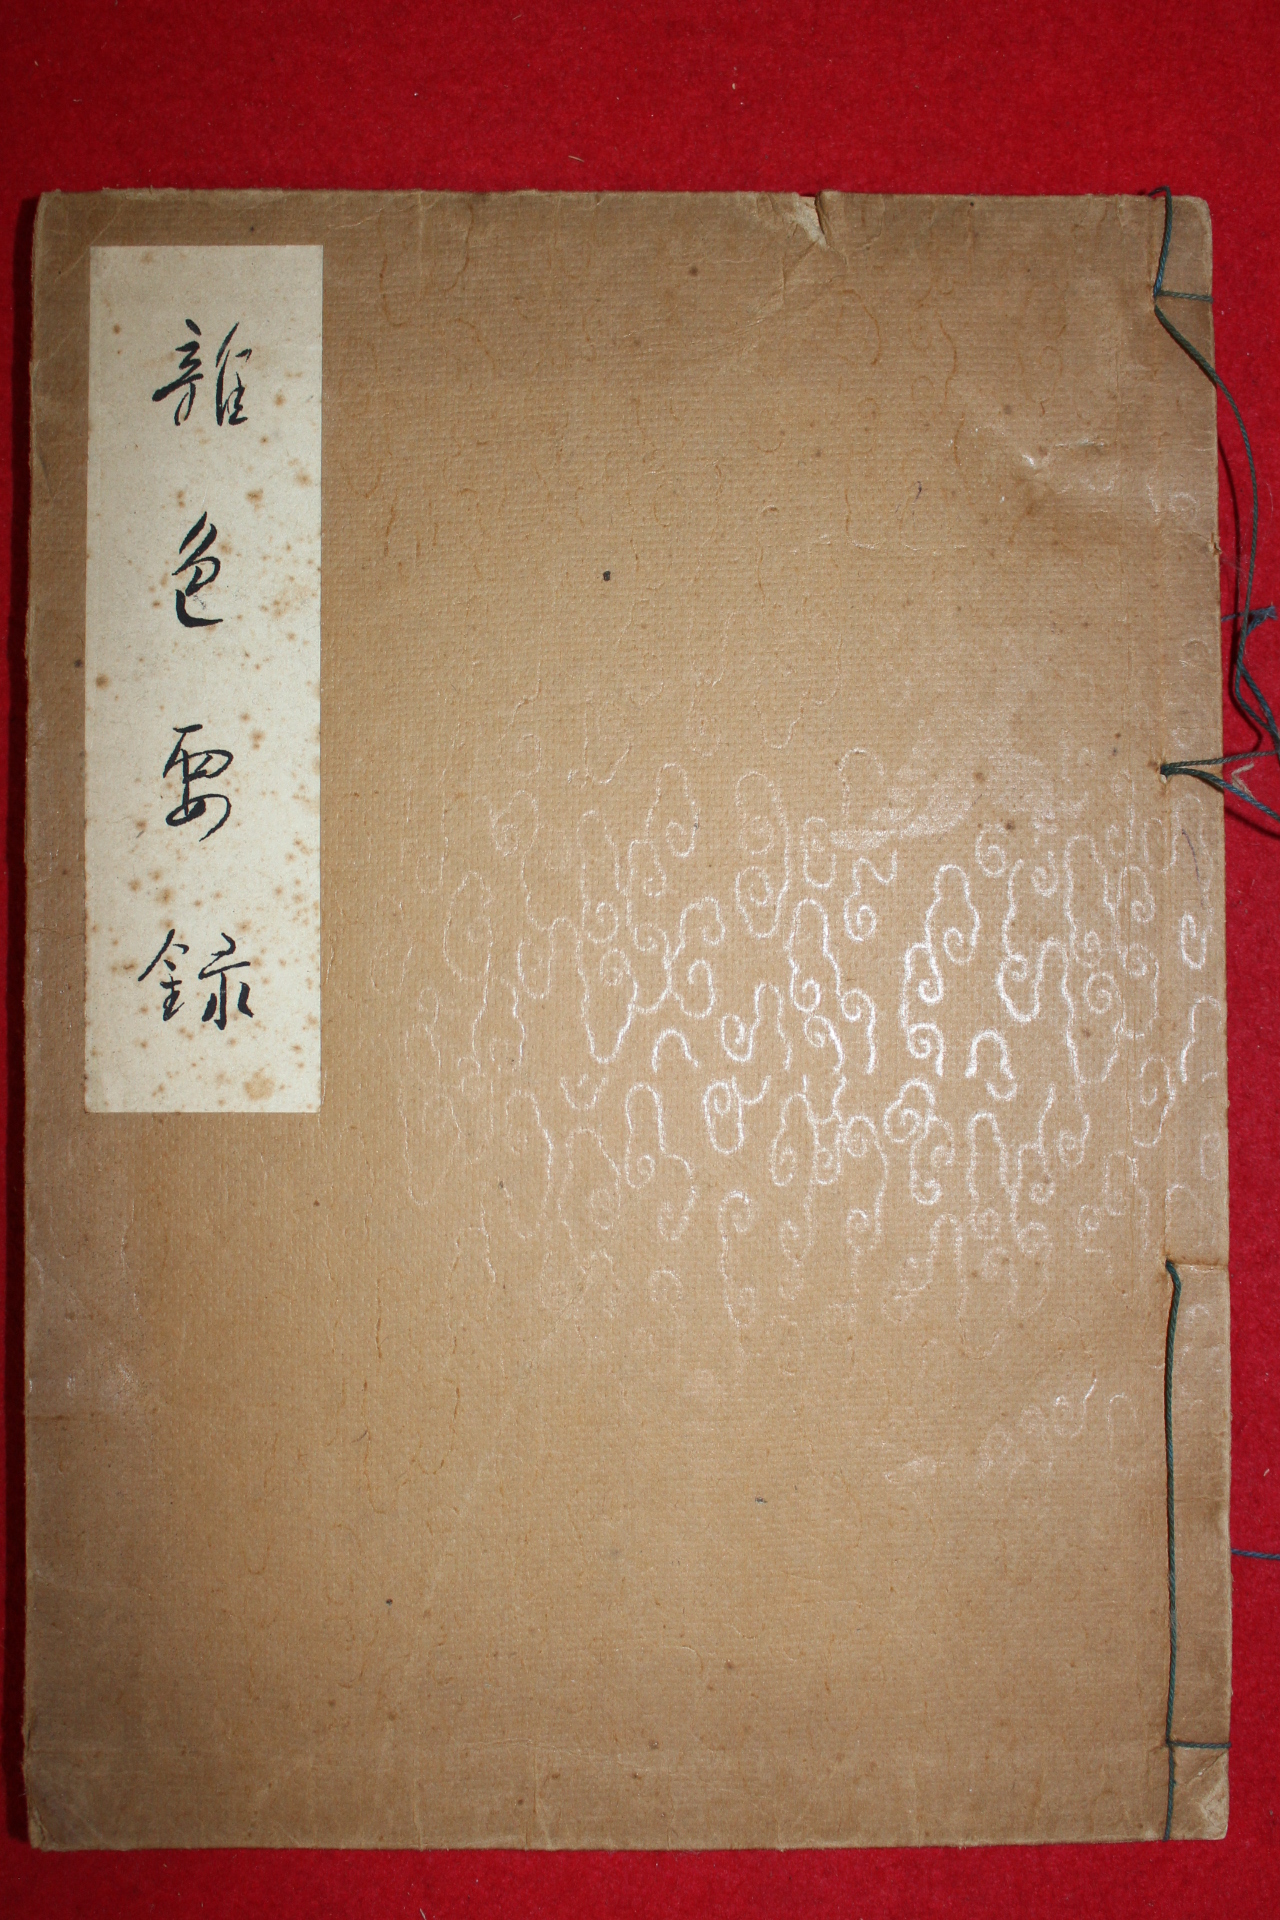 雜色要錄